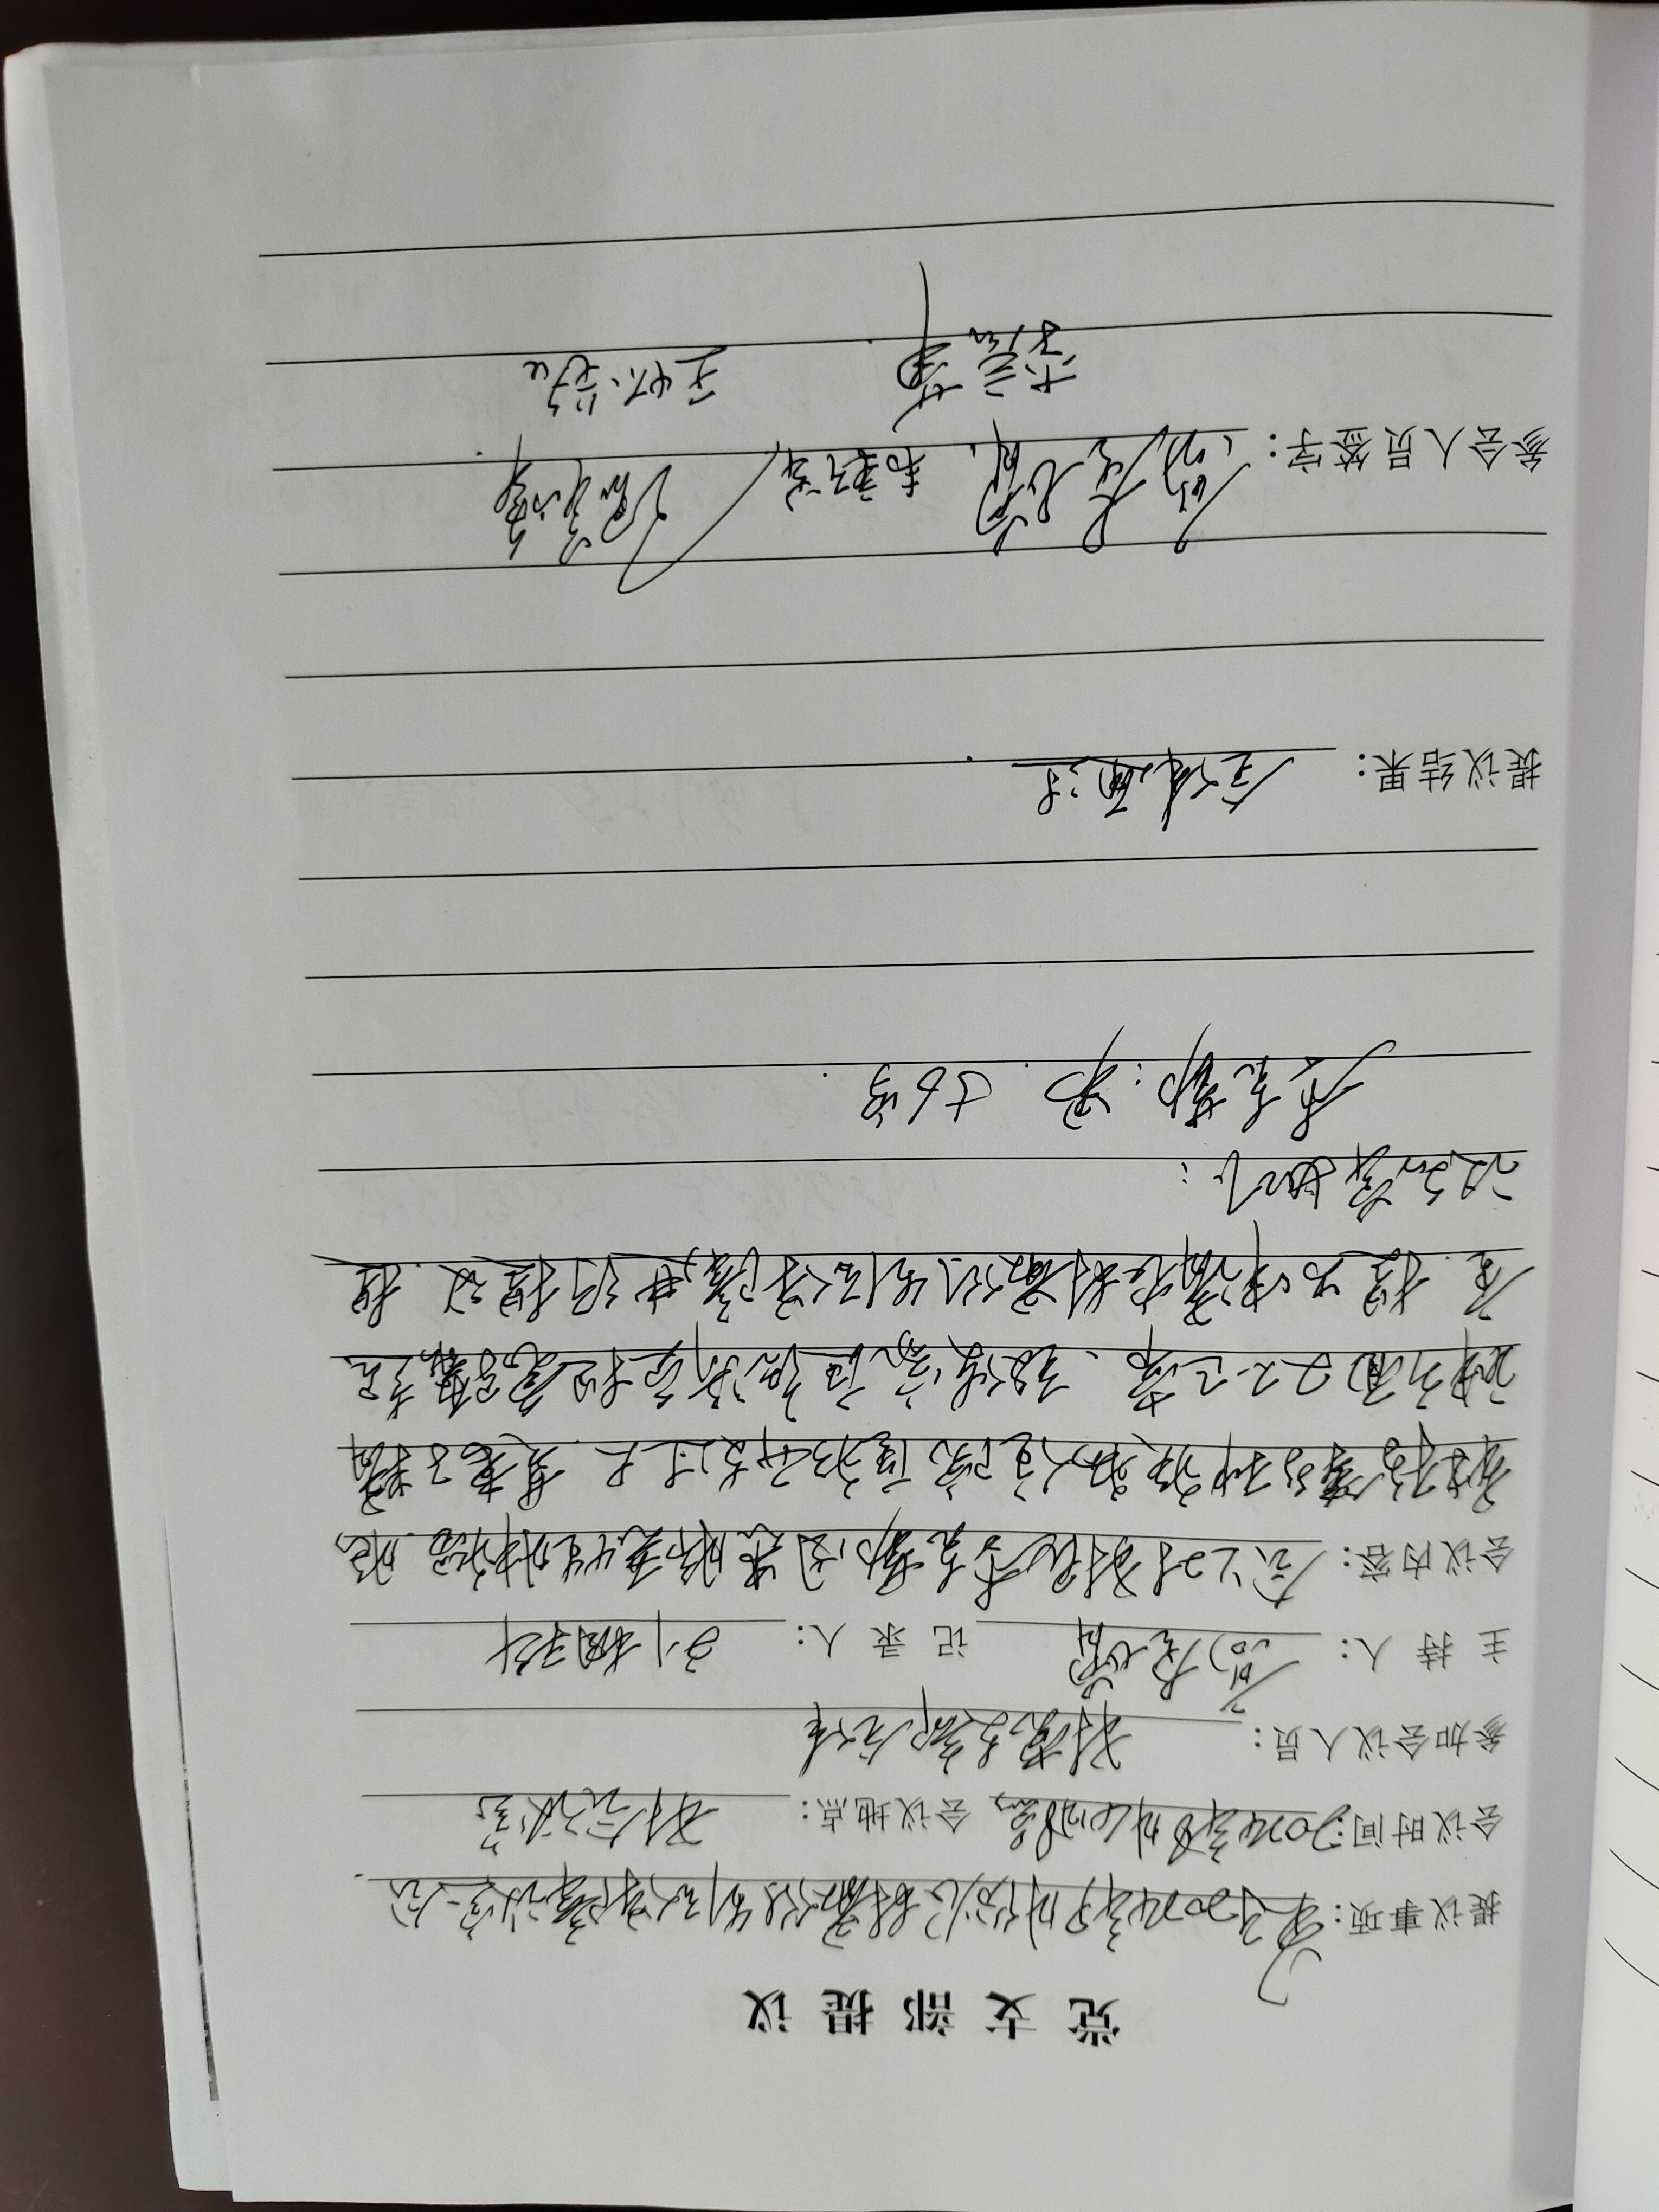 党支部提议
提议事项: 关于2024年9月份农村最低生活保障议定会.
会议时间: 2024年8月4日8点 会议地点: 村会议室
参加会议人员: 村党支部全体
主持人: 高奎增 记录人: 刘相科
会议内容: 会上对村民李克勤因患肺恶性肿瘤.脑
转移等多种疾病住院医疗开支过大.其妻子精
神方面又不正常、致使家庭经济负担急骤超
重.提出申请农村最低生活保障进行提议.提
议名单如下:
李克勤:男.56岁.
提议结果: 全体通过.
参会人员签字: 高奎增.
李宏革. 王怀铭